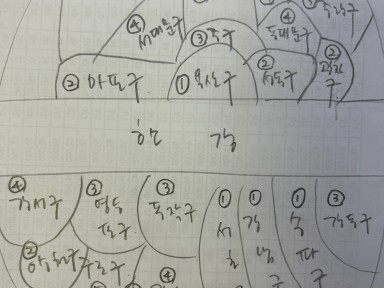 ④ 서대문구
③ 중구
④ 동대문구
② 마포구
① 용산구
② 성동구
② 광진구
한 강
④ 강서구
③ 영등포구
③ 동작구
① 서초
① 강남구
① 송파구
③ 강동구
② 양천구
구로구
④